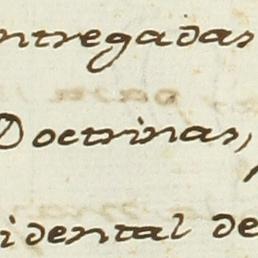 ntregadas
Doctrinas,
idental de